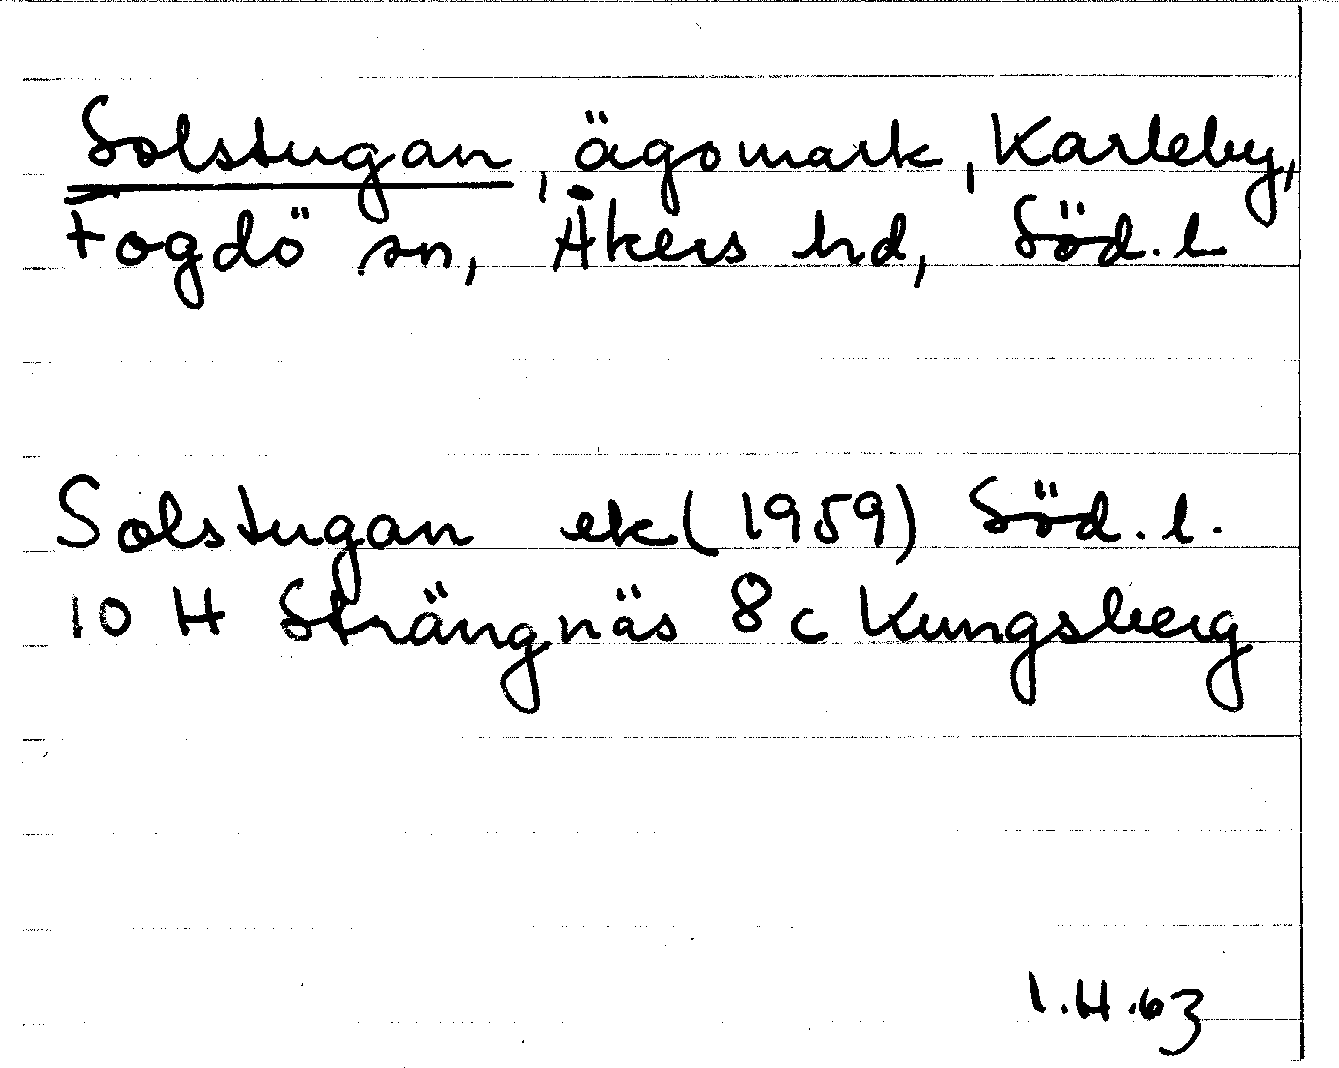 Solstugan, ägomark, Karleby,
Fogdö sn, Åkers hd, Söd. l
Solstugan ek (1959) Söd. l.
10 H Strängnäs 8 c Kungsberg
I.H.63